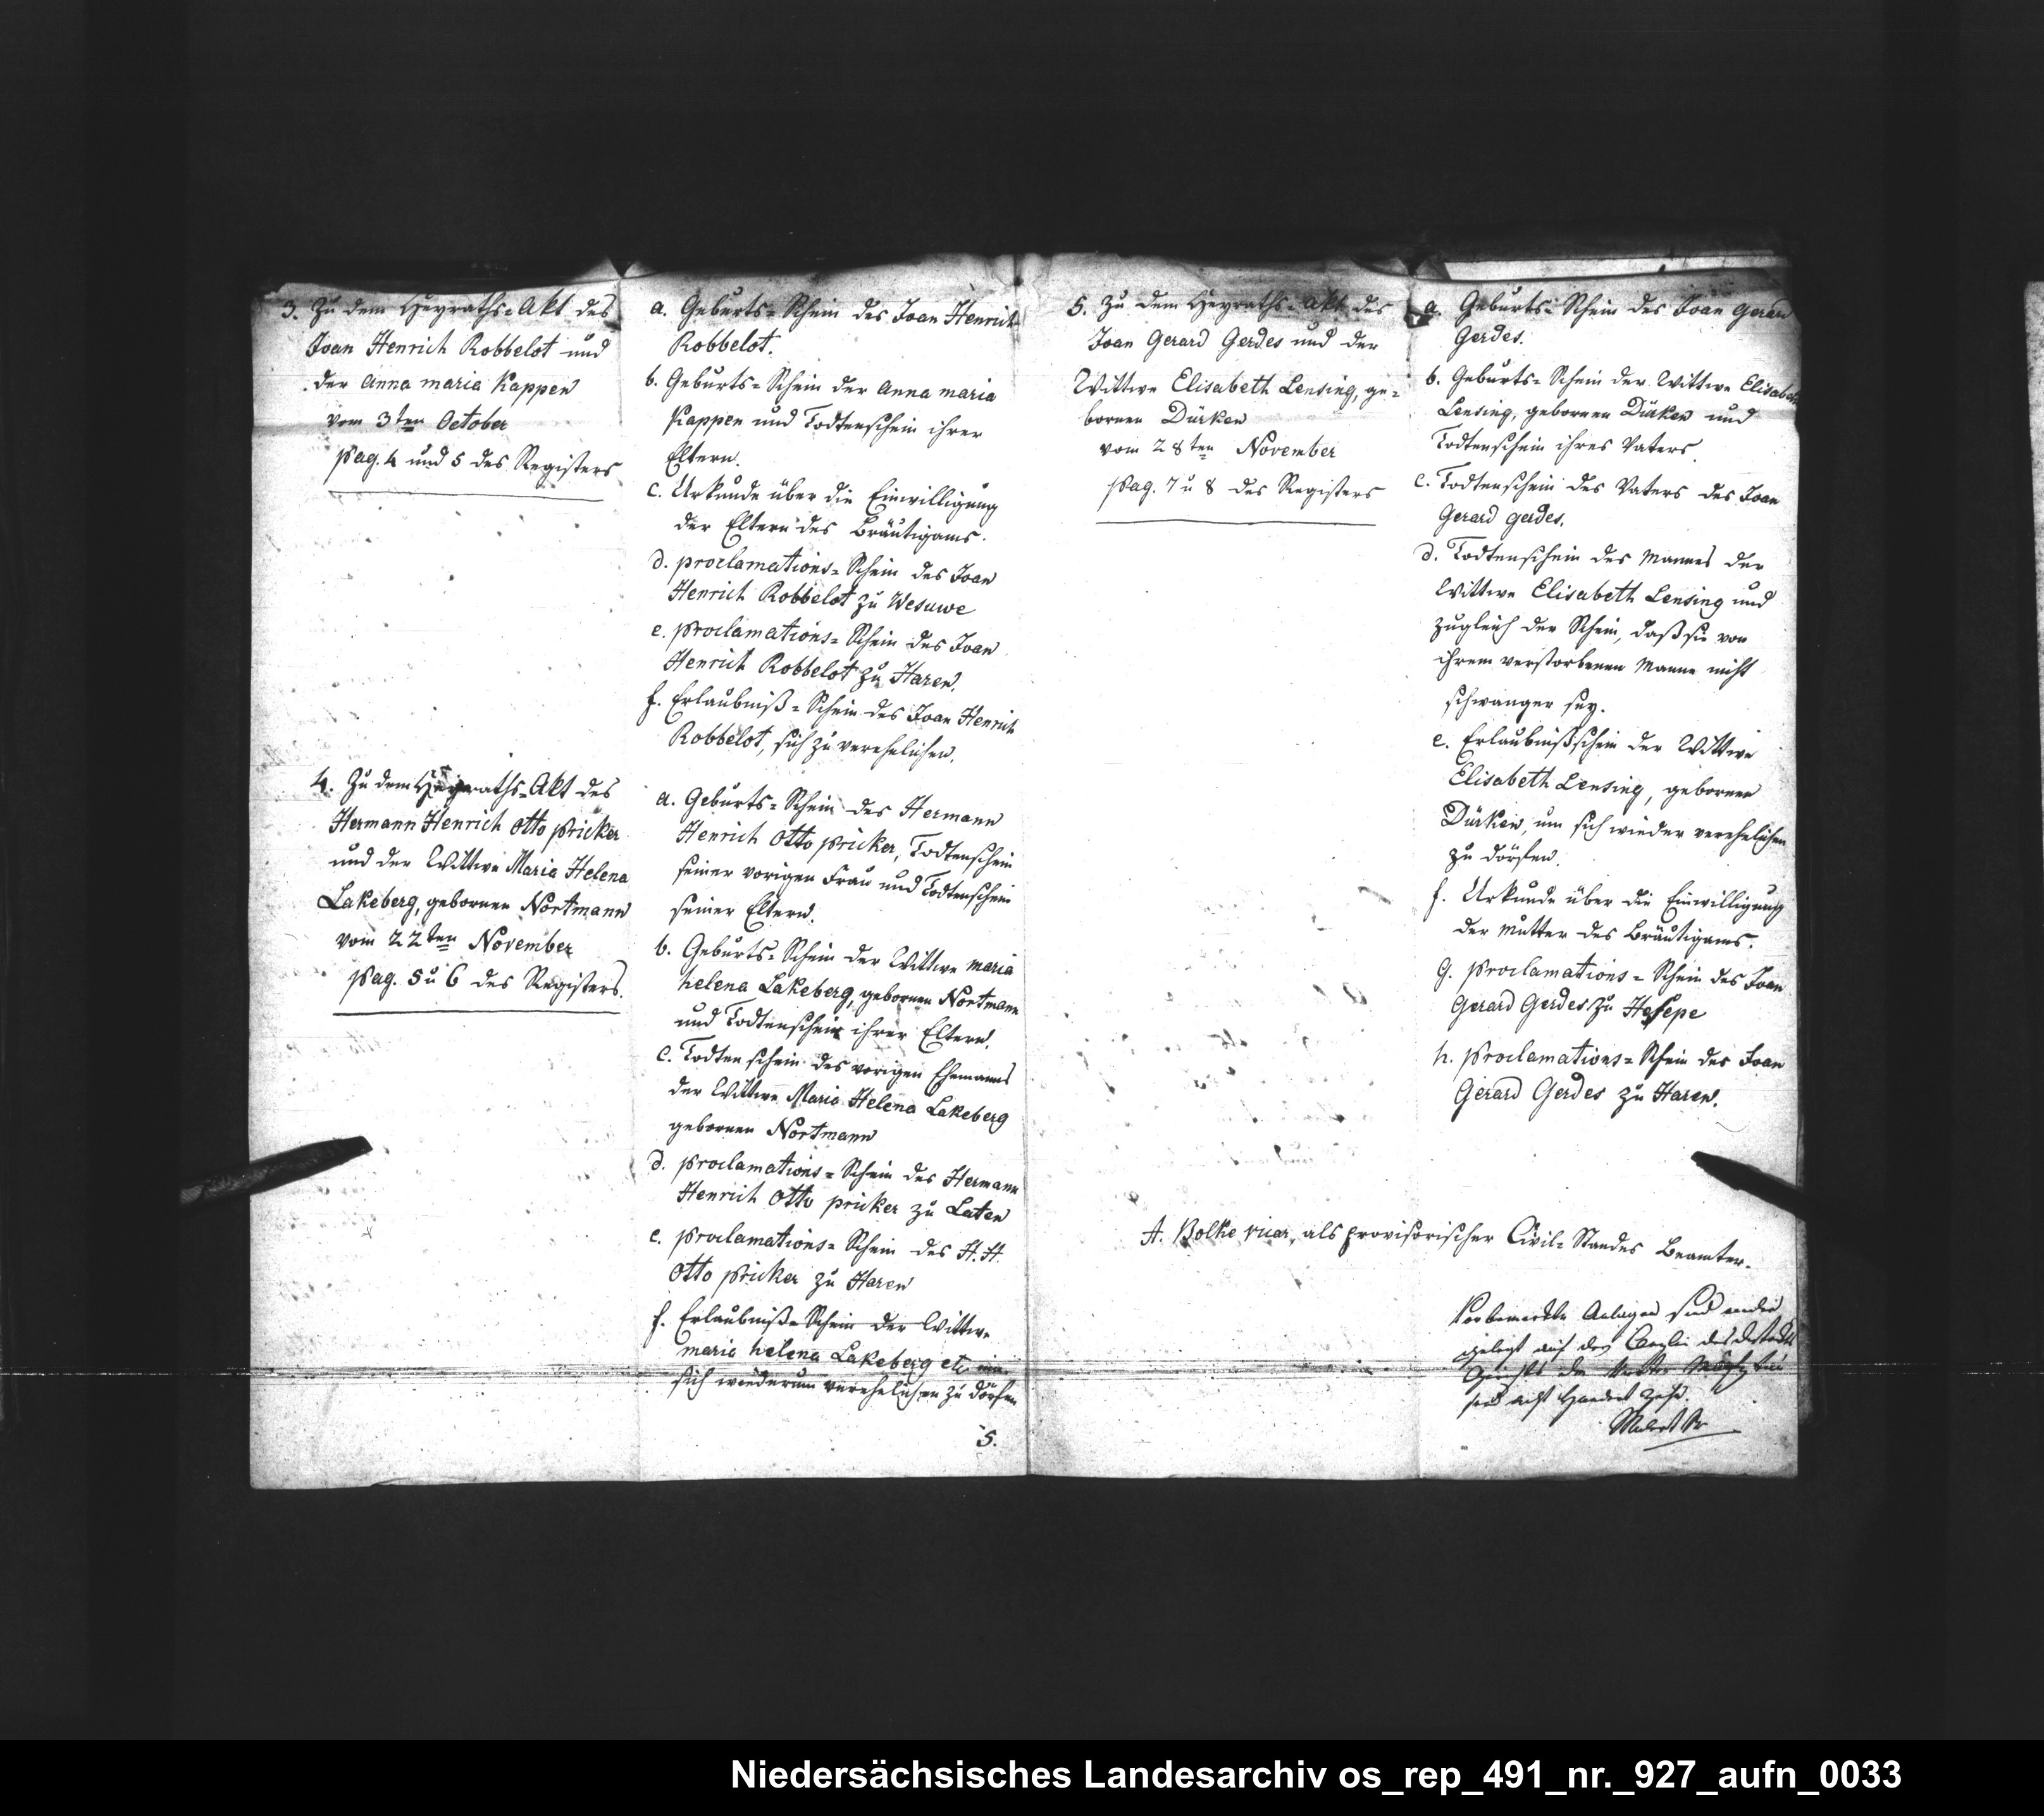 3. Zu dem Heyraths=Akt des
Joan Henrich Robbelot und
der Anna maria Kappen
vom 3ten October
pag. 4 und 5 des Registers
a. Geburts=Schein des Joan Henrich
Robbelot.
b. Geburts=Schein der Anna maria
Kappen und Todtenschein ihrer
Eltern.
c. Urkunde über die Einwilligung
der Eltern des Bräutigams.
d. proclamations=Schein des Joan
Henrich Robbelot zu Wesuwe
e. proclamations=Schein des Joan
Henrich Robbelot zu Haren.
f. Erlaubniß=Schein des Joan Henrich
Robbelot, sich zu verehelichen.
4. Zu dem Heyraths=Akt des
Hermann Henrich Otto pricker
und der Wittwe Maria Helena
Lakeberg, gebornen Nortmann
vom 22ten November
pag. 5 u 6 des Registers.
a. Geburts=Schein des Hermann
Henrich Otto pricker, Todtenschein
seiner vorigen Frau und Todtenschein
seiner Eltern.
b. Geburts=Schein der Wittwe maria
helena Lakeberg, gebornen Nortmann
und Todtenschein ihrer Eltern.
c. Todtenschein des vorigen Ehemanns
der Wittwe Maria Helena Lakeberg
gebornen Nortmann
d. proclamations=Schein des Hermann
Henrich Otto pricker zu Laten
e. proclamations=Schein des H. H.
Otto pricker zu Haren
f. Erlaubniß=Schein der Wittwe
maria helena Lakeberg etc. um
sich wiederum verehelichen zu dörfen
5.
5. Zu dem Heyraths=Akt des
Joan Gerard Gerdes und der
Wittwe Elisabeth Lensing, ge=
bornen Dürken
vom 28ten November
pag. 7 u 8 des Registers
a. Geburts=Schein des Joan Gerard
Gerdes.
b. Geburts=Schein der Wittwe Elisabeth
Lensing, gebornen Dürken und
Todtenschein ihres Vaters.
c. Todtenschein des Vaters des Joan
Gerard Gerdes.
d. Todtenschein des Mannes der
Wittwe Elisabeth Lensing und
zugleich der Schein, daß sie von
ihrem verstorbenen Manne nicht
schwanger sey.
e. Erlaubnißschein der Wittwe
Elisabeth Lensing, gebornen
Dürken, um sich wieder verehelichen
zu dörfen.
f. Urkunde über die Einwilligung
der Mutter des Bräutigams.
g. proclamations=Schein des Joan
Gerard Gerdes zu Hesepe
h. proclamations=Schein des Joan
Gerard Gerdes zu Haren.
A. Bolke vicar, als provisorischer Civil=Standes Beamter.
Vorbemerkte Anlagen sind
gelegt auf der Canzlei des
acht Hundert
Niedersächsisches Landesarchiv os_rep_491_nr._927_aufn_0033